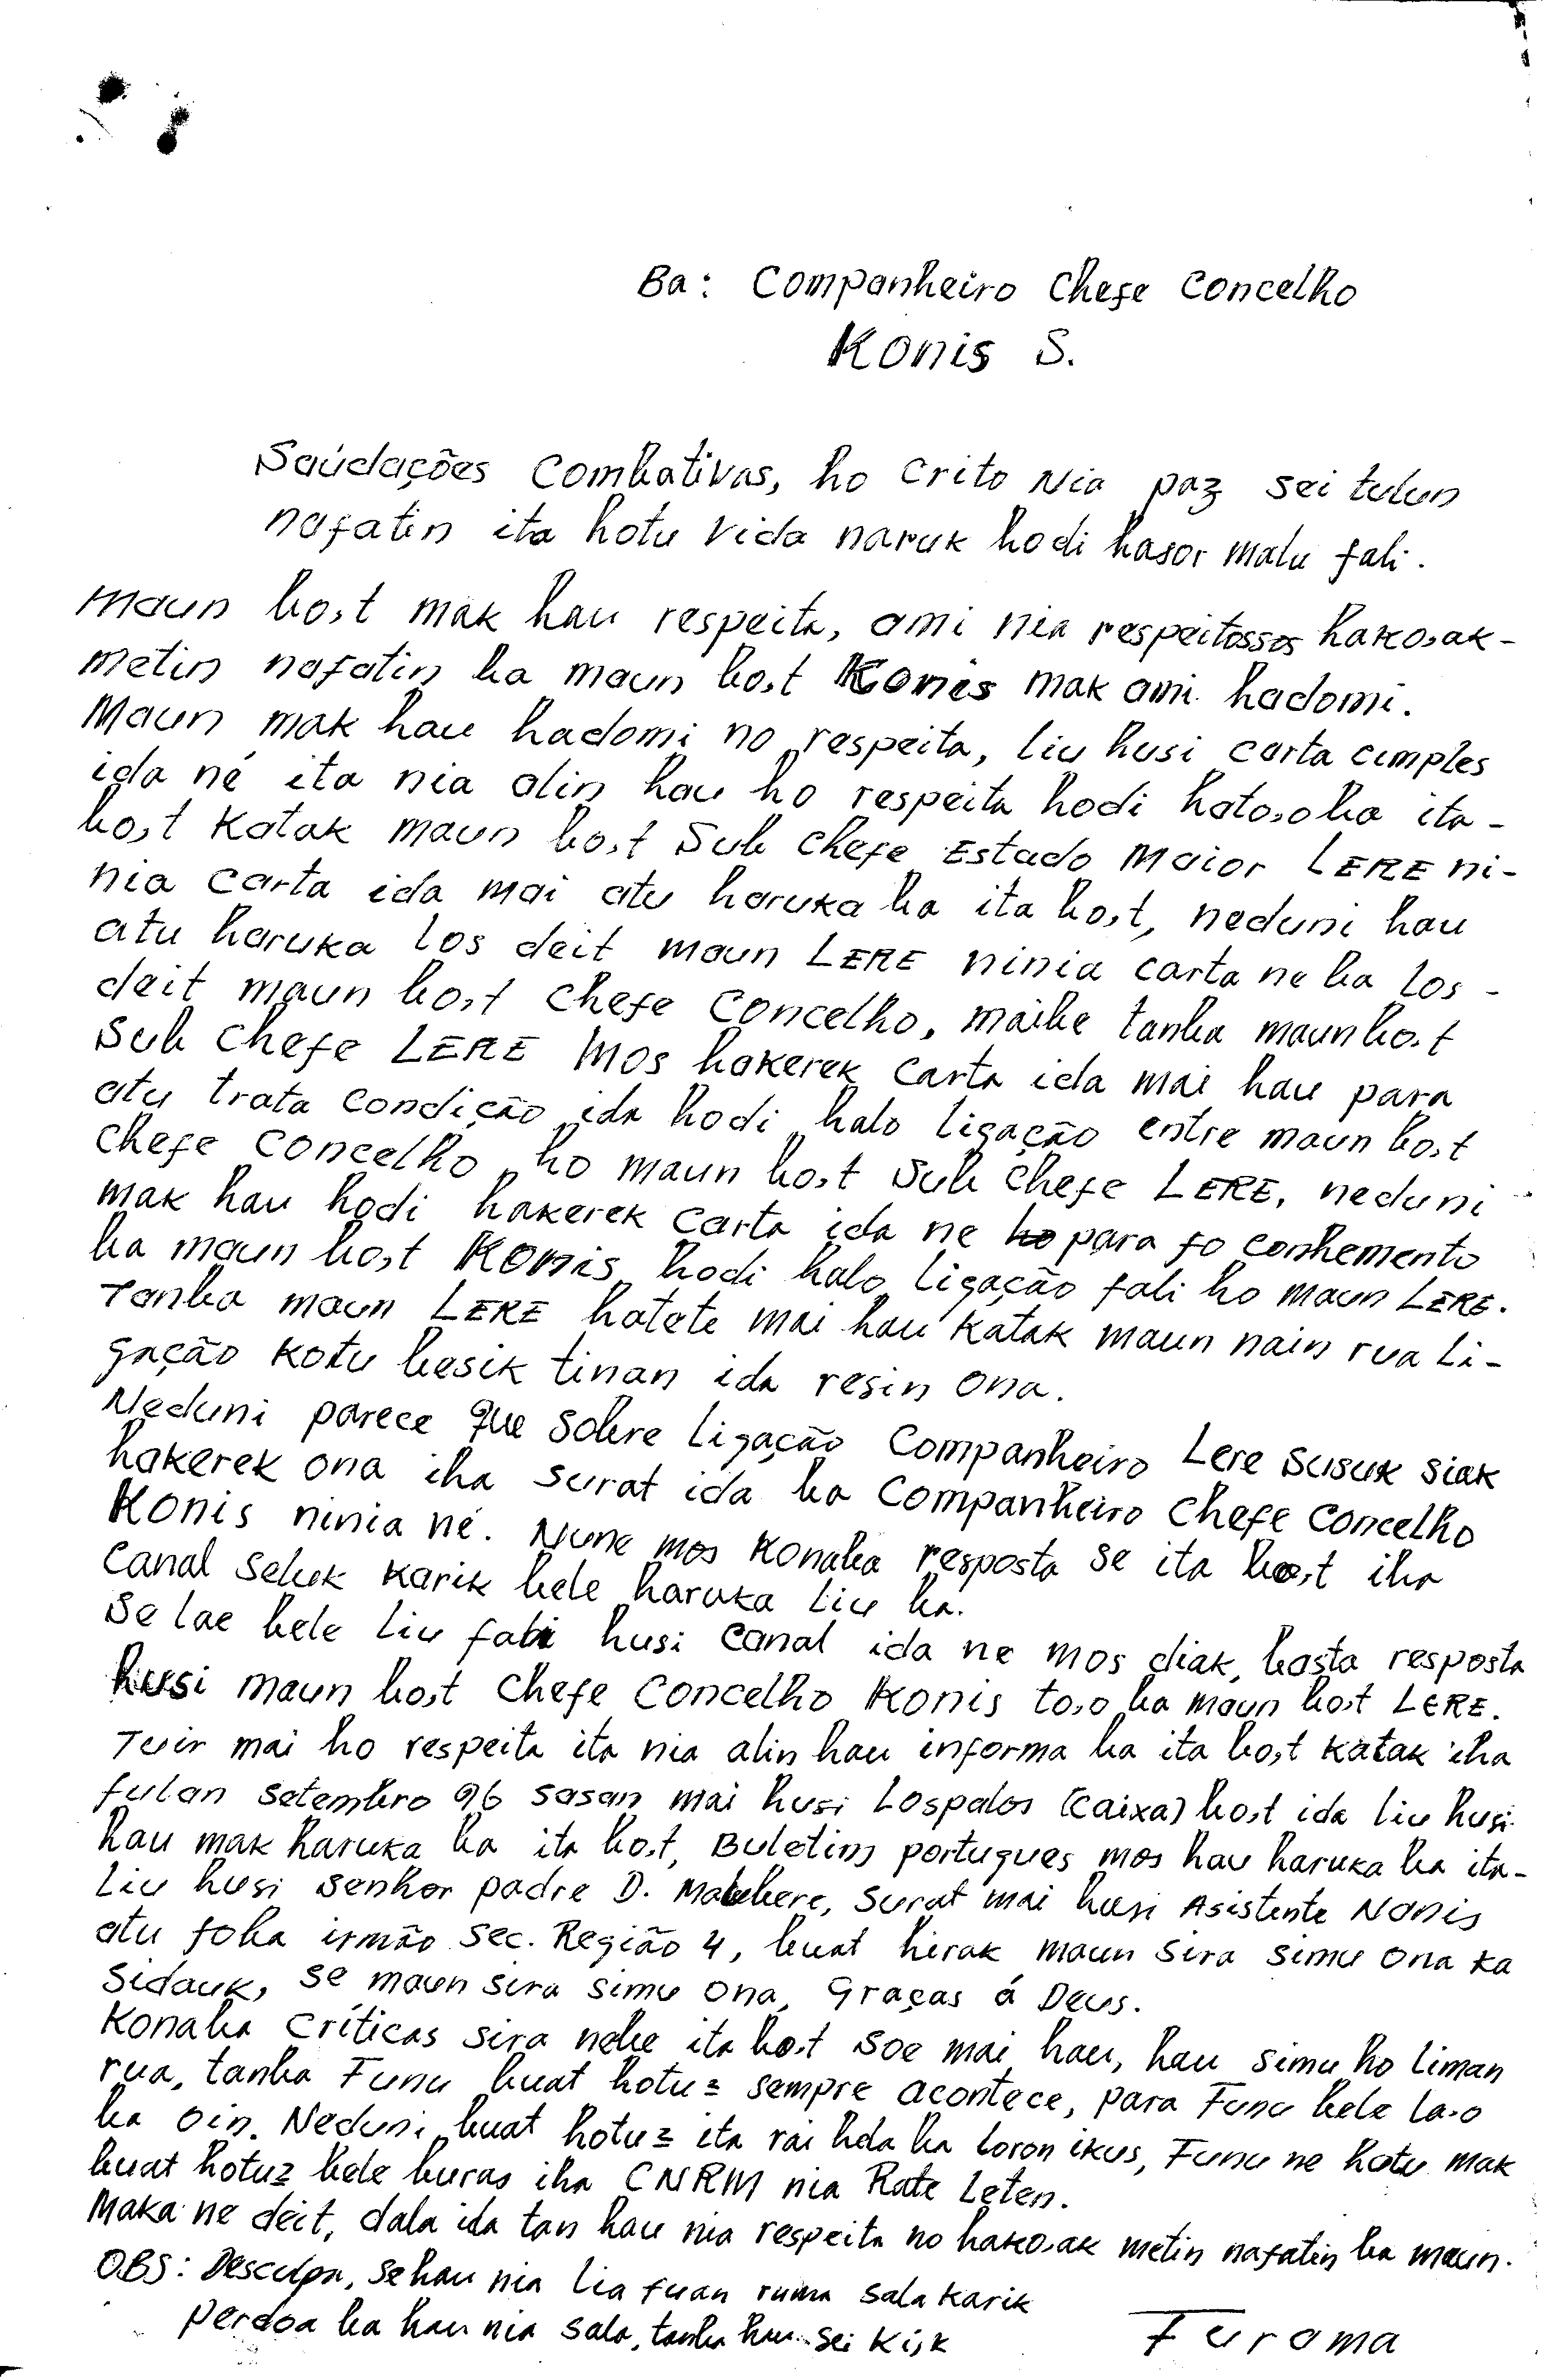 Ba: Companheiro Chefe Concelho
Konis S.
Saúdações Combativas, ho Crito Nia paz sei tulun
nafatin ita hotu vida naruk hodi hasor malu fali.
Maun bo,t mak hau respeita, ami nia respeitossos hako,ak-
metin nafatin ba maun bo,t Konis mak ami hadomi.
Maun mak hau hadomi no respeita, liu husi carta cimples
ida né ita nia alin hau ho respeita hodi hato,o ba ita-
bo,t Katak maun bo,t Sub Chefe Estado Maior LERE ni-
nia carta ida mai atu haruka ba ita bo,t, neduni hau
atu haruka los deit maun LERE ninia carta ne ba los-
deit maun bo,t Chefe Concelho, maibe tanba maun bo,t
Sub Chefe LERE mos hakerek carta ida mai hau para
atu trata condição ida hodi halo ligação entre maun bo,t
Chefe Concelho ho maun bo,t Sub Chefe LERE, neduni
mak hau hodi hakerek carta ida ne ho para fo conhemento
ba maun bo,t Konis hodi halo ligação fali ho maun LERE.
Tanba maun LERE hatete mai hau katak maun nain rua Li-
gação kotu besik tinan ida resin ona.
Neduni parece que sobre Ligação Companheiro Lere susuk siak
hakerek ona iha surat ida ba Companheiro Chefe Concelho
Konis ninia né. Nune mos konaba resposta se ita bo,t iha
canal seluk karik bele haruka liu ba.
Se lae bele liu fali husi canal ida ne mos diak, basta resposta
husi maun bo,t Chefe Concelho Konis to,o ba maun bo,t LERE.
Tuir mai ho respeita ita nia alin hau informa ba ita bo,t katak iha
fulan Setembro 96 sasan mai husi Lospalos (caixa) bo,t ida liu husi
hau mak haruka ba ita bo,t, Buletins portugues mos hau haruka ba ita-
liu husi senhor padre D. Maubere, surat mai husi Asistente Nanis
atu foba irmão Sec. Região 4, buat hirak maun sira simu ona ka
sidauk, se maun sira simu ona, Graças á Deus.
Konaba críticas sira nebe ita bo,t soe mai hau, hau simu ho liman
rua, tanba Funu buat hotu2 sempre acontece, para Funu bele la,o
ba oin. Neduni buat hotu2 ita rai hela ba loron ikus, Funu ne hotu mak
buat hotu2 bele buras iha CNRM nia Rate Leten.
Maka ne deit, dala ida tan hau nia respeita no hako,ak metin nafatin ba maun.
OBS: Desculpa, se hau nia lia fuan ruma sala karik
perdoa ba hau nia sala, tanba hau sei ki,k
Furama